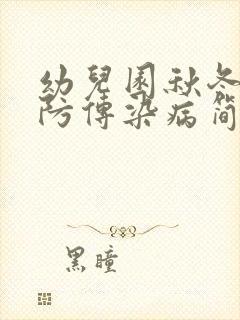 幼兒園秋冬
防傳染病簡
黑瞳